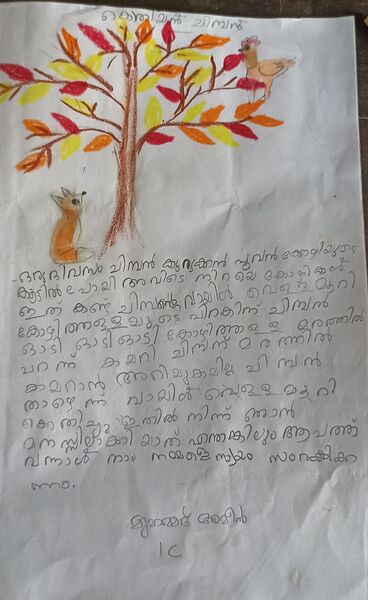 കൊതിയൻ ചിമ്പൻ
ഒരു ദിവസം ചിമ്പൻ കുറുക്കൻ പൂവൻ കോഴിയുടെ
കൂട്ടിൽ പോയി അവിടെ നിറയെ കോഴികൾ
ഇത് കണ്ട ചിമ്പന്റെ വായിൽ വെള്ളമൂറി
കോഴിത്തള്ളയുടെ പിറകിന് ചിമ്പൻ
ഓടി ഓടിഓടി കോഴിത്തള്ള മരത്തിൽ
പറന്ന് കയറി ചിമ്പന് മരത്തിൽ
കയറാൻ അറിയുകയില്ല ചിമ്പൻ
താഴെ ന്ന് വായിൽ വെള്ളമൂറി
കൊതിച്ചു ഇതിൽ നിന്ന് ഞാൻ
മനസ്സിലാക്കിയാത് എന്തങ്കിലും ആപത്ത്
വന്നാൾ നാം നമ്മളെസ്വയം സംരക്ഷിക്ക
ണം.
മുഹമ്മദ് അമീൻ
1C